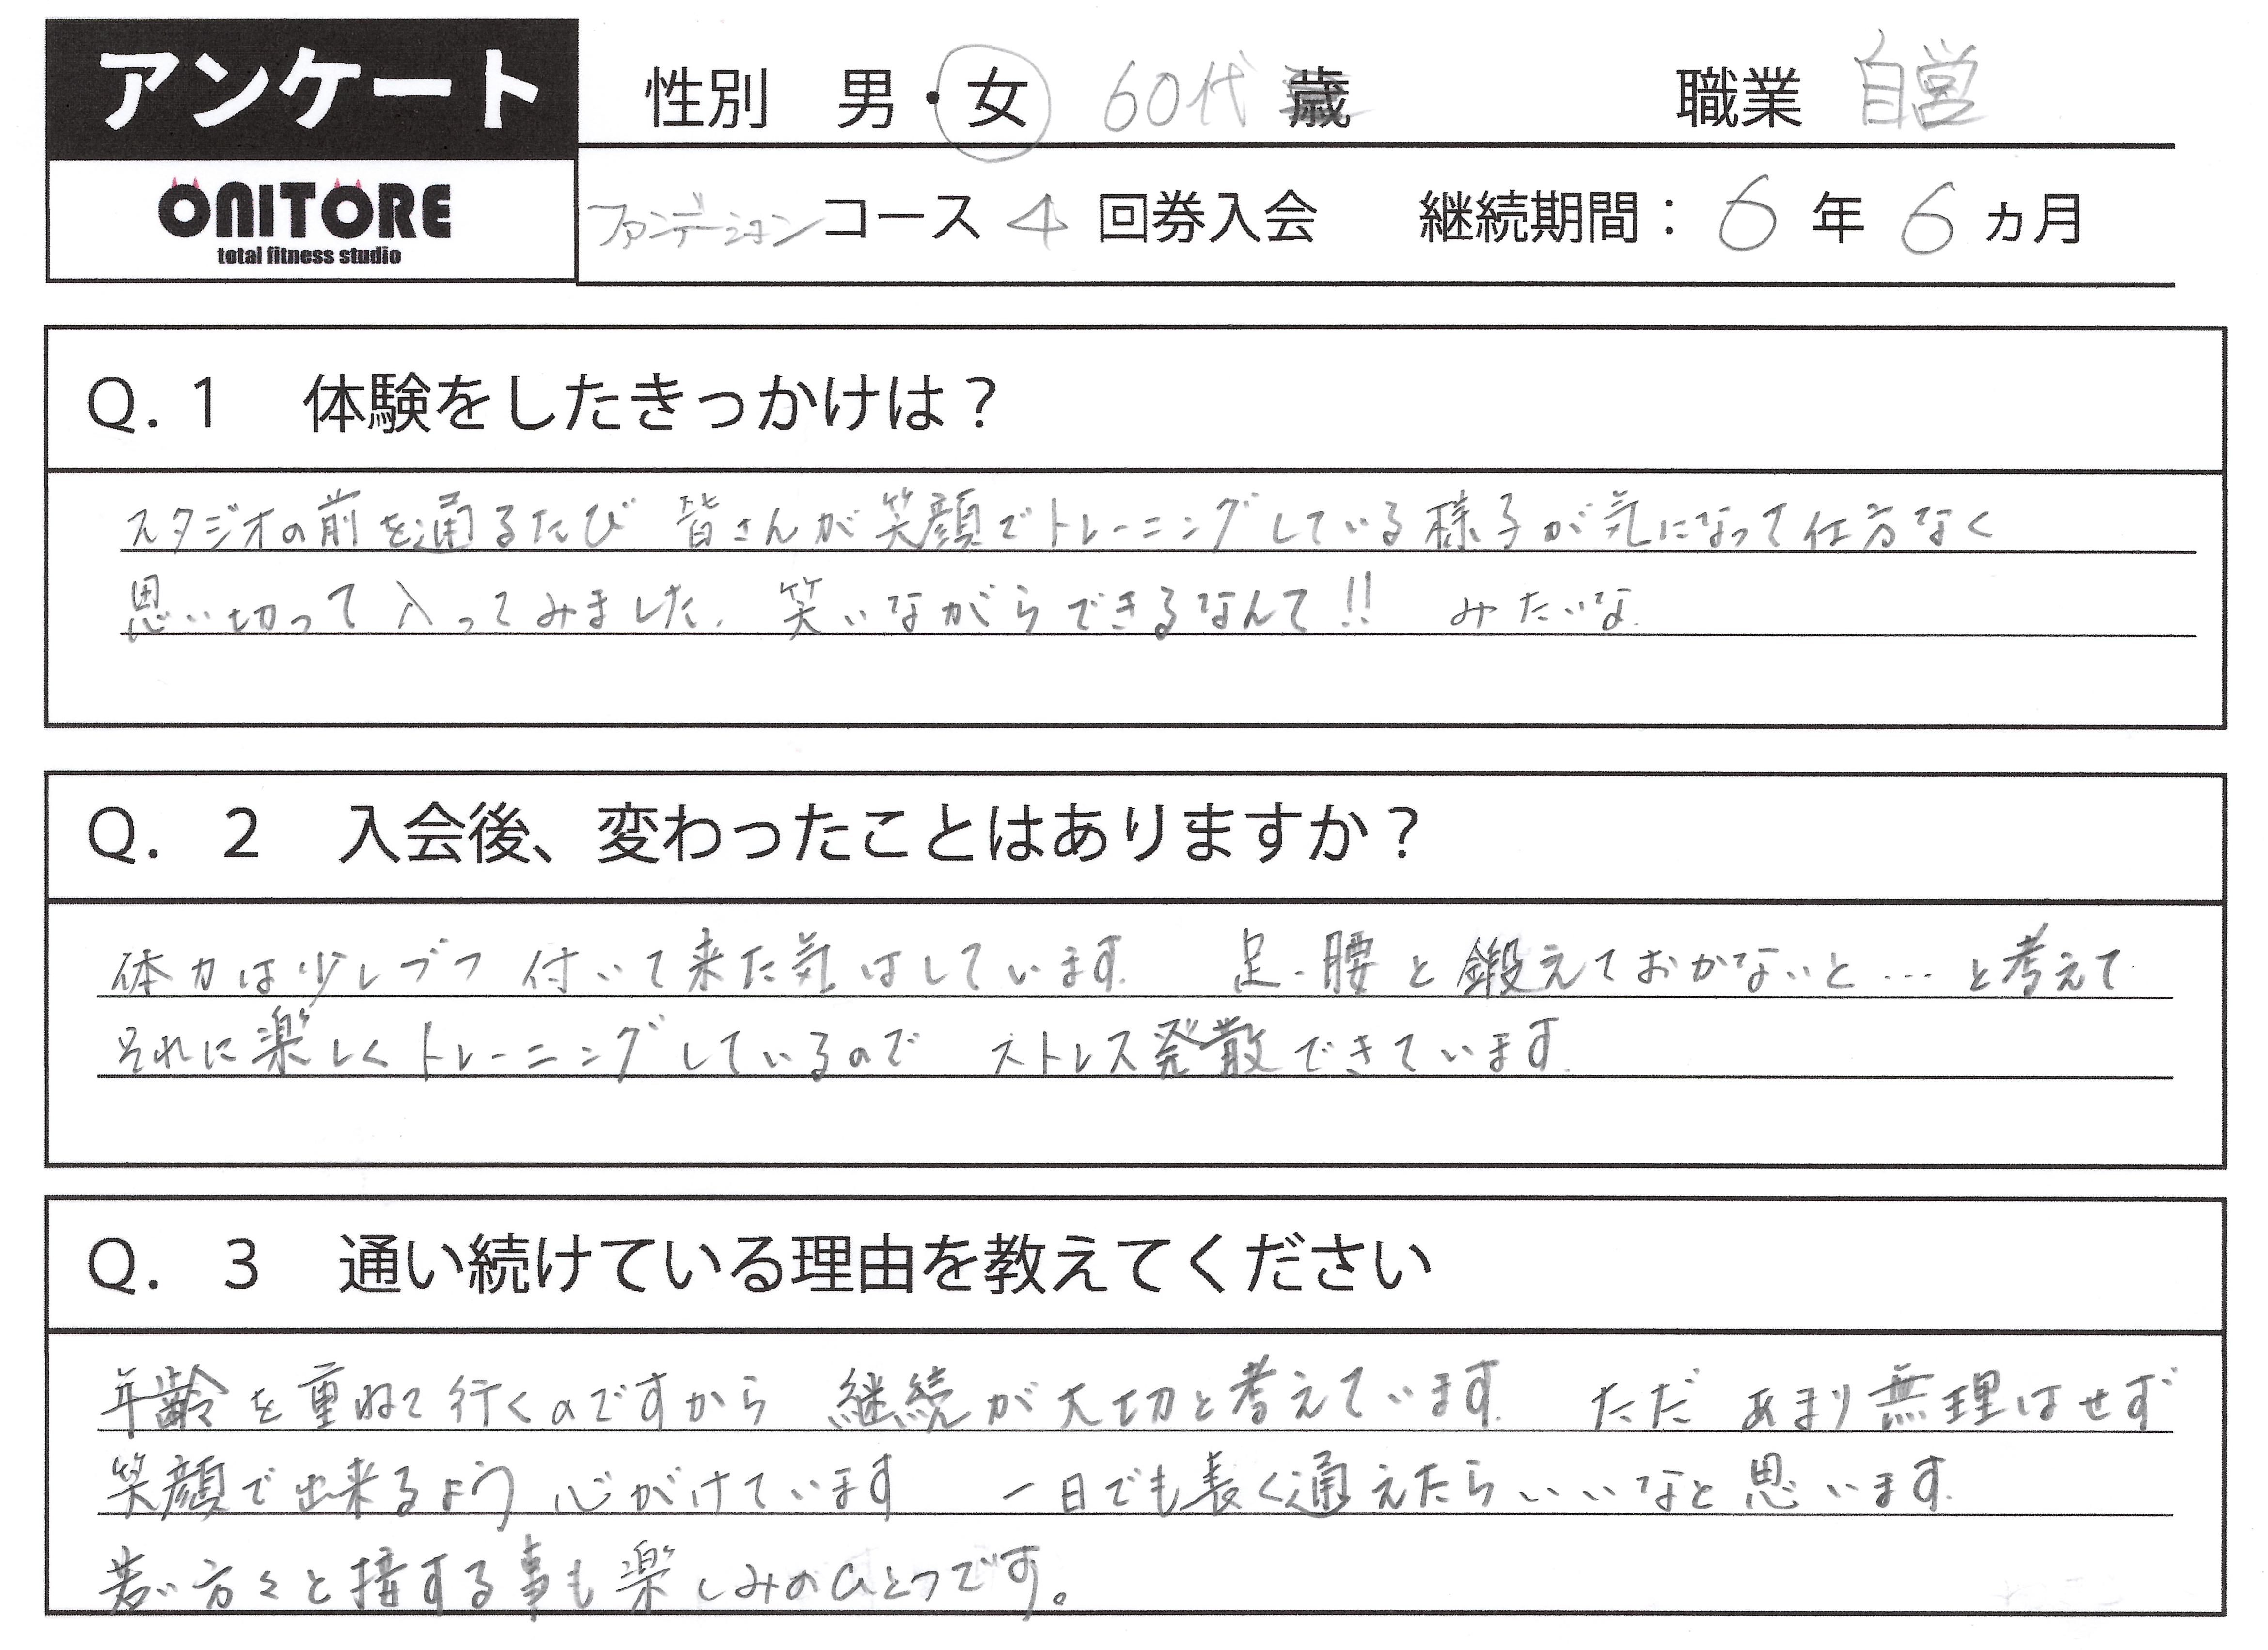 アンケート
性別 男・女 60代 歳 職業 自営
ONITORE
total fitness studio
ファンデーションコース 4 回券入会 継続期間：6 年 6 ヵ月
Q.1 体験をしたきっかけは？
スタジオの前を通るたび 皆さんが笑顔でトレーニングしている様子が気になって仕方なく
思い切って入ってみました. 笑いながらできるなんて!! みたいな.
Q. 2 入会後、変わったことはありますか？
体力は少しづつ 付いて来た気はしています. 足・腰と鍛えておかないと…と考えて
それに楽しくトレーニングしているので ストレス発散できています.
Q. 3 通い続けている理由を教えてください
年齢を重ねて行くのですから 継続が大切と考えています. ただ あまり無理はせず
笑顔で出来るよう 心がけています 一日でも長く通えたらいいなと思います.
若い方々と接する事も楽しみのひとつです。